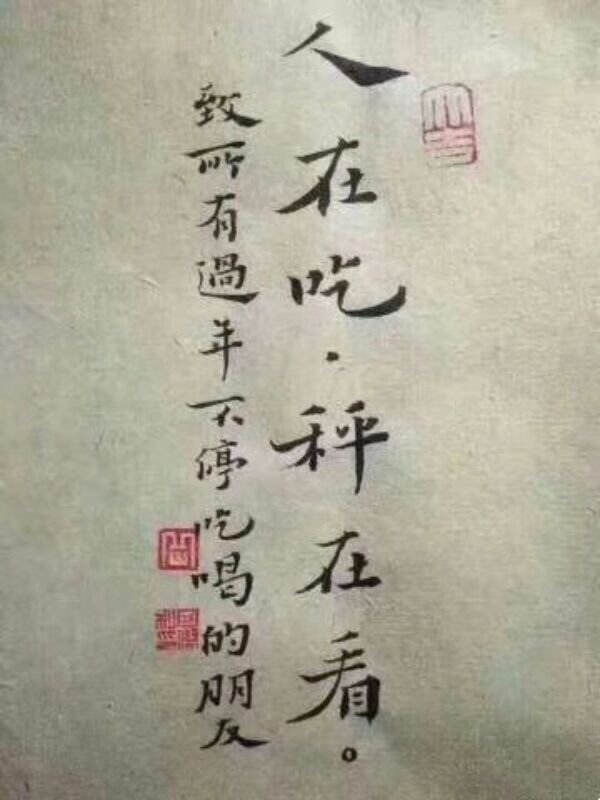 人在吃．秤在看。
致所有過年不停吃喝的朋友